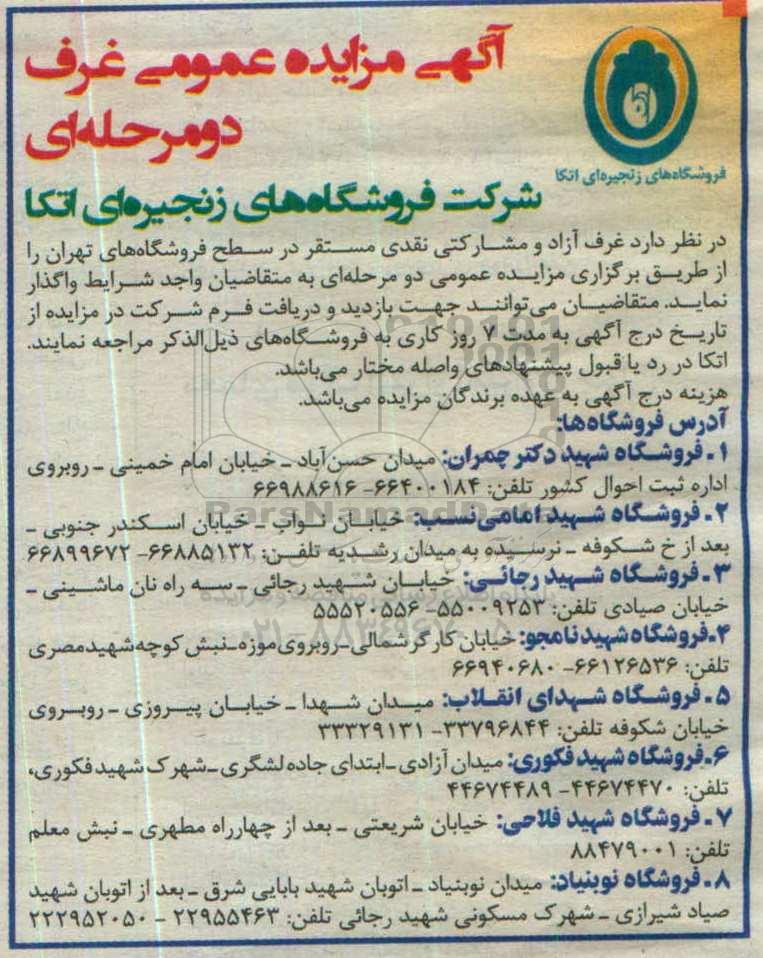 آگهی مزایده عمومی غرف
دومرحله‌ای
فروشگاه‌های زنجیره‌ای اتکا
شرکت فروشگاه‌های زنجیره‌ای اتکا
در نظر دارد غرف آزاد و مشارکتی نقدی مستقر در سطح فروشگاه‌های تهران را
از طریق برگزاری مزایده عمومی دو مرحله‌ای به متقاضیان واجد شرایط واگذار
نماید. متقاضیان می‌توانند جهت بازدید و دریافت فرم شرکت در مزایده از
تاریخ درج آگهی به مدت ۷ روز کاری به فروشگاه‌های ذیل‌الذکر مراجعه نمایند.
اتکا در رد یا قبول پیشنهادهای واصله مختار می‌باشد.
هزینه درج آگهی به عهده برندگان مزایده می‌باشد.
آدرس فروشگاه‌ها:
۱ـ فروشگاه شهید دکتر چمران: میدان حسن‌آباد ـ خیابان امام خمینی ـ روبروی
اداره ثبت احوال کشور تلفن: ۶۶۴۰۰۱۸۴- ۶۶۹۸۸۶۱۶
۲ـ فروشگاه شهید امامی‌نسب: خیابان نواب ـ خیابان اسکندر جنوبی ـ
بعد از خ شکوفه ـ نرسیده به میدان رشدیه تلفن: ۶۶۸۸۵۱۳۲- ۶۶۸۹۹۶۷۲
۳ـ فروشگاه شهید رجائی: خیابان شهید رجائی ـ سه راه نان ماشینی ـ
خیابان صیادی تلفن: ۵۵۰۰۹۲۵۳- ۵۵۵۲۰۵۵۶
۴ـ فروشگاه شهید نامجو: خیابان کارگر شمالی ـ روبروی موزه ـ نبش کوچه شهید مصری
تلفن: ۶۶۱۲۶۵۳۶- ۶۶۹۴۰۶۸۰
۵ـ فروشگاه شهدای انقلاب: میدان شهدا ـ خیابان پیروزی ـ روبروی
خیابان شکوفه تلفن: ۳۳۷۹۶۸۴۴- ۳۳۳۲۹۱۳۱
۶ـ فروشگاه شهید فکوری: میدان آزادی ـ ابتدای جاده لشگری ـ شهرک شهید فکوری،
تلفن: ۴۴۶۷۴۴۷۰- ۴۴۶۷۴۴۸۹
۷ـ فروشگاه شهید فلاحی: خیابان شریعتی ـ بعد از چهارراه مطهری ـ نبش معلم
تلفن: ۸۸۴۷۹۰۰۱
۸ـ فروشگاه نوبنیاد: میدان نوبنیاد ـ اتوبان شهید بابایی شرق ـ بعد از اتوبان شهید
صیاد شیرازی ـ شهرک مسکونی شهید رجائی تلفن: ۲۲۹۵۵۴۶۳ - ۲۲۲۹۵۲۰۵۰
ParsNamadData
۰۲۱-۸۸۳۴۹۶۷۰-۵